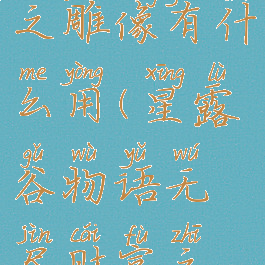 之雕像有什
me yòng xīng lù
么用(星露
gǔ wù yǔ wú
谷物语无
jìn cái fù zhī
尽财富之